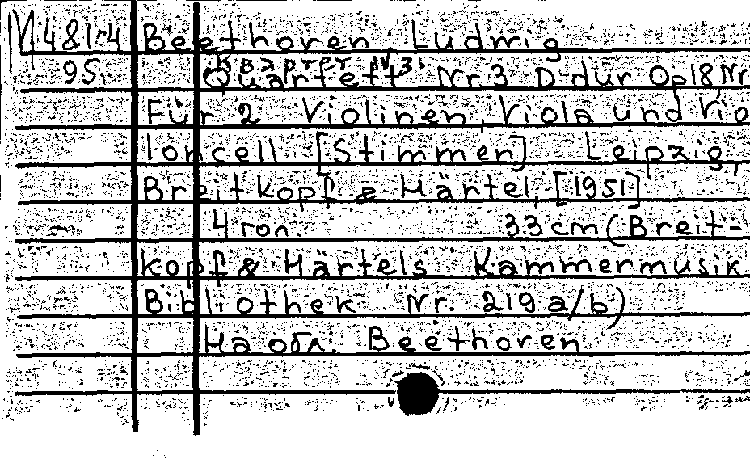 М481-4 Beethoven Ludwig
Квартет N3.
95. Quartett Nr.3 D-dur Op18,Nr
Für 2 Violinen, Viola und Vio
loncell [Stimmen] Leipzig,
Breitkopf & Härtel, [1951]
4 гол. 33cm (Breit-
kopf & Härtels Kammermusik
Bibliothek Nr. 219a/b)
На обл. Beethoven